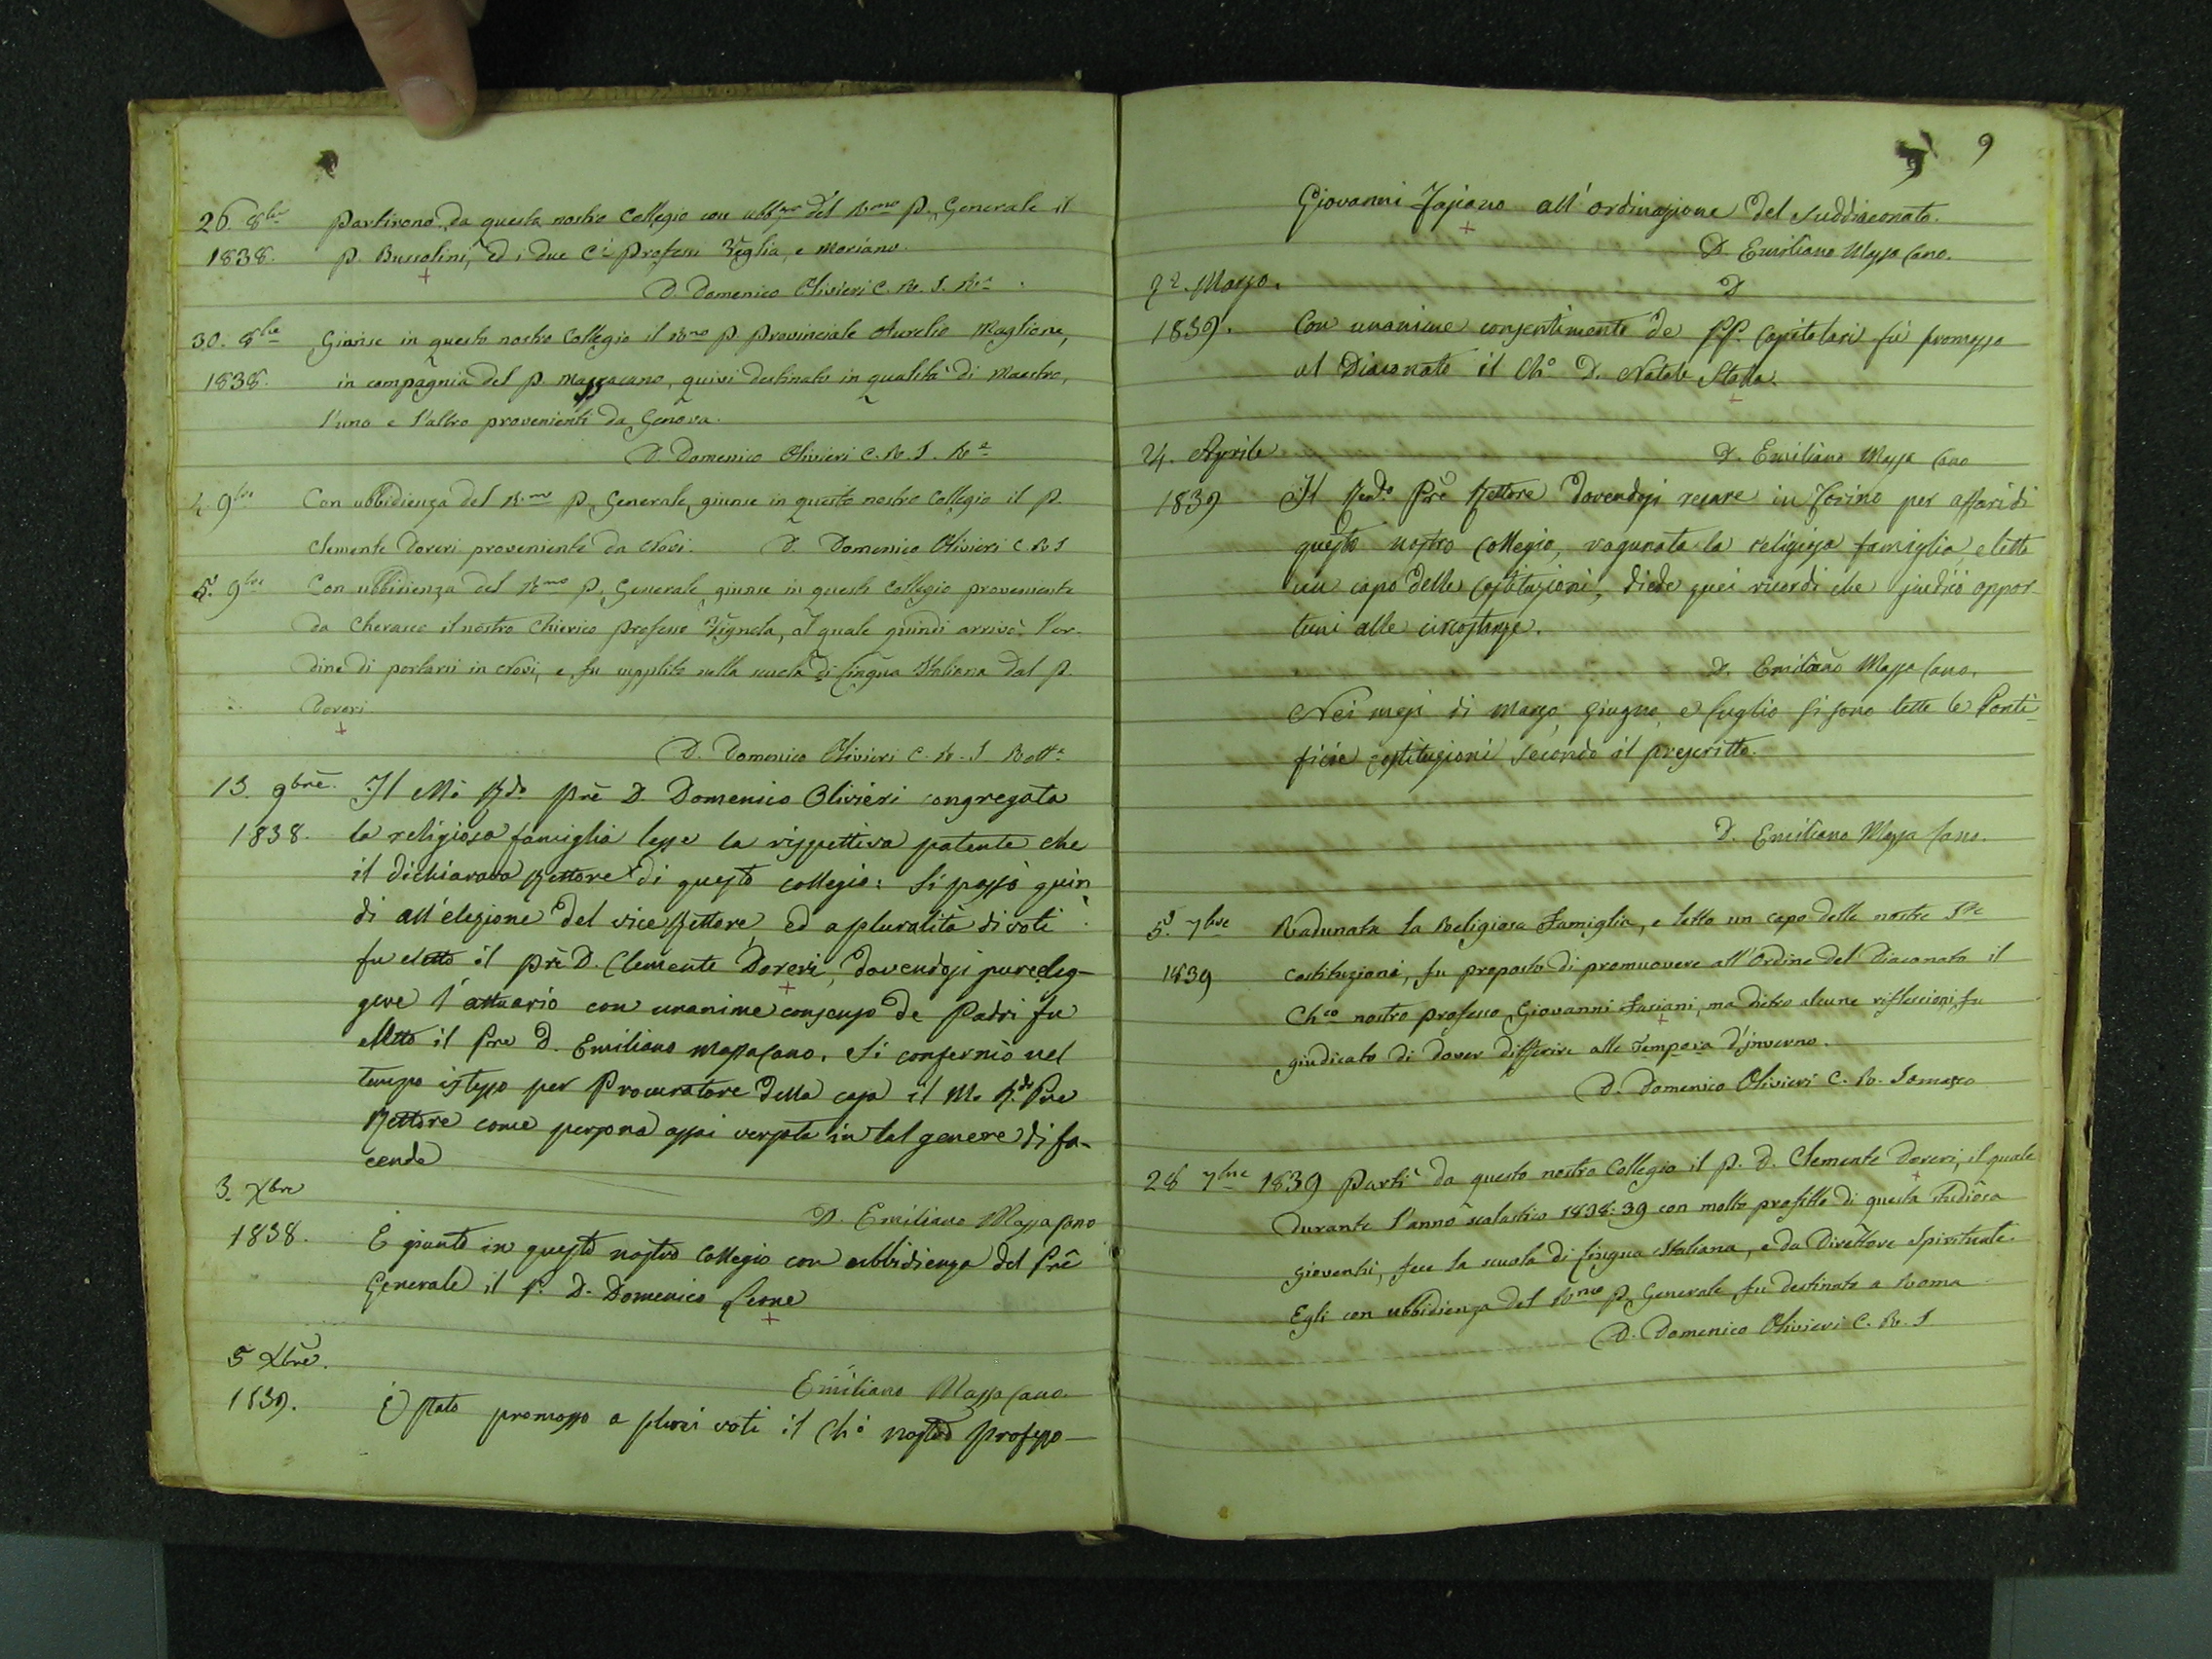 26. 8bre Partirono da questo nostro Collegio con ubbza del Rmo P. Generale il
1838. P. Bussolini, ed i due Ci Professi Veglia, e Moriano.
D. Domenico Olivieri C. R. S. Re
30. 8bre Giunse in questo nostro Collegio il Rmo P. Provinciale Aurelio Maglione,
1838. in compagnia del P. Massacano, quivi destinato in qualità di Maestro,
l'uno e l'altro provenienti da Genova.
D. Domenico Olivieri C. R. S. Re
4. 9bre Con ubbidienza del Rmo P. Generale, giunse in questo nostro Collegio il P.
Clemente Doreri proveniente da Novi. D. Domenico Olivieri C. R. S
5. 9bre Con ubbidienza del Rmo P. Generale giunse in questo Collegio proveniente
da Cherasco il nostro Chierico professo Vignola, al quale quindi arrivò l'or-
dine di portarsi in Novi, e fu supplito nella scuola di lingua Italiana dal P.
Doreri.
D. Domenico Olivieri C. R. S. Rett.
13. 9bre. Il Mo Rdo Pre D. Domenico Olivieri congregata
1838. la religiosa famiglia lesse la rispettiva patente che
il dichiarava Rettore di questo collegio: Si passò quin
di all'elezione del vice Rettore ed a pluralità di voti
fu eletto il pre D. Clemente Doreri, dovendosi pure eleg-
gere l'attuario con unanime consenso de Padri fu
eletto il Pre D. Emiliano Massacano. Si confermò nel
tempo istesso per Procuratore della casa il M. R.do Pre
Rettore come persona assai versata in tal genere di fa-
cende
D. Emiliano Massacano
3. Xbre
1838. E giunto in questo nostro Collegio con ubbidienza del Pre
Generale il P. D. Domenico Leone
Emiliano Massacano
5 Xbre.
1839. È stato promosso a pluri voti il Cho nostro professo
9
Giovanni Fasiano all'ordinazione del Suddiaconato.
D. Emiliano Massa Cano.
D
Marzo.
1839. Con unanime consentimento de PP. Capitolari fù promosso
al Diaconato il Cho D. Natale Stalla.
D. Emiliano Massa Cano
24. Aprile
1839 Il Rendo Pre Rettore dovendosi recare in Torino per affari di
questo nostro collegio, ragunata la religiosa famiglia e letto
un capo delle Costituzioni, diede quei ricordi che giudicò oppor-
tuni alle circostanze.
D. Emiliano Massa Cano.
Nei mesi di Marzo, Giugno, e Luglio si sono lette le Ponti-
ficie costituzioni secondo il prescritto.
D. Emiliano Massa Cano.
5. 7bre Radunata la Religiosa Famiglia, e letto un capo delle nostre Ste
1839 costituzioni, fu proposto di promuovere all'Ordine del Diaconato il
Chco nostro professo Giovanni Fasiani, ma dietro alcune riflessioni, fu
giudicato di dover differire alle Tempora d'inverno.
D. Domenico Olivieri C. R. Somasco
28 7bre 1839 Partì da questo nostro Collegio il P. D. Clemente Doreri, il quale
durante l'anno scolastico 1838:39 con molto profitto di questa studiosa
gioventù, fece la scuola di lingua Italiana, e da Direttore Spirituale.
Egli con ubbidienza del Rmo P. Generale fu destinato a Roma
D. Domenico Olivieri C. R. S.